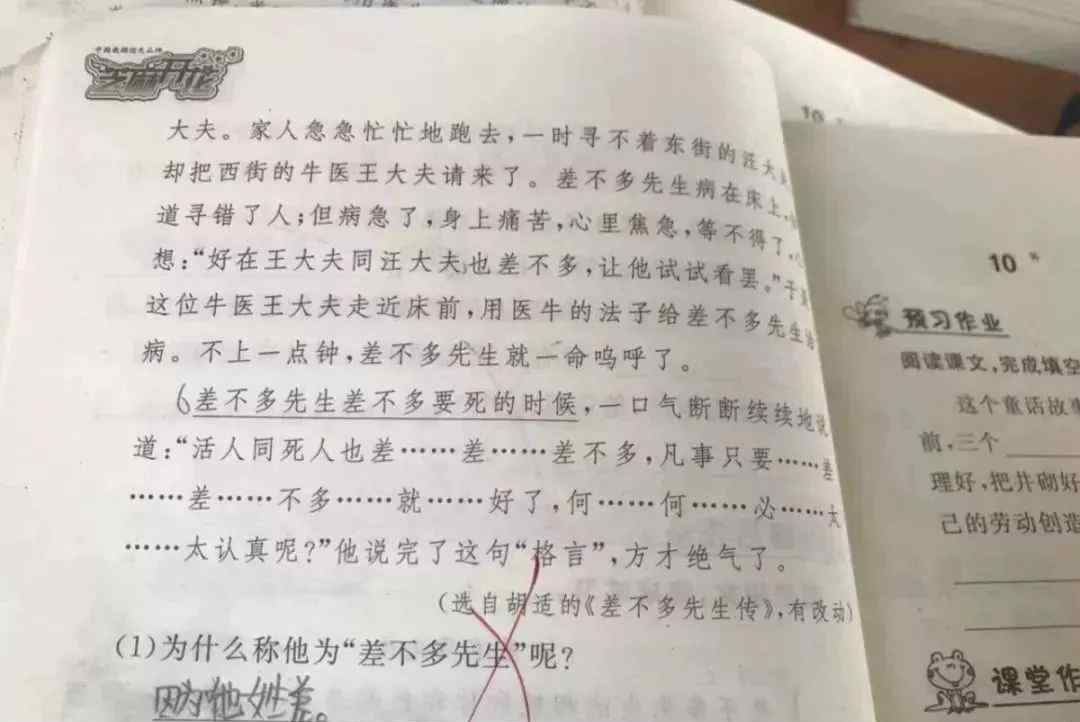 芝麻开花
大夫。家人急急忙忙地跑去，一时寻不着东街的汪大夫
却把西街的牛医王大夫请来了。差不多先生病在床上，
道寻错了人；但病急了，身上痛苦，心里焦急，等不得了，心
想：“好在王大夫同汪大夫也差不多，让他试试看罢。”于是
这位牛医王大夫走近床前，用医牛的法子给差不多先生治
病。不上一点钟，差不多先生就一命呜呼了。
差不多先生差不多要死的时候，一口气断断续续地说
道：“活人同死人也差……差……差不多，凡事只要……差
……差……不多……就……好了，何……何……必……太
……太认真呢？”他说完了这句“格言”，方才绝气了。
（选自胡适的《差不多先生传》，有改动）
（1）为什么称他为“差不多先生”呢？
因为他姓差。
10
预习作业
阅读课文，完成填空
这个童话故事
前，三个
理好，把井砌好
己的劳动创造
课堂作